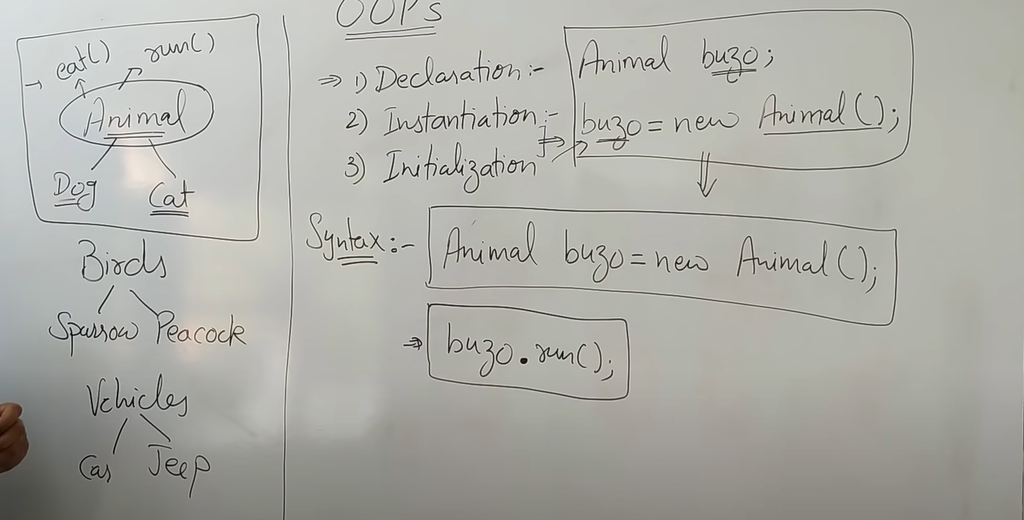 OOPs
eat() run()
Animal
Dog Cat
Birds
Sparrow Peacock
Vehicles
Car Jeep
1) Declaration:-
2) Instantiation:-
3) Initialization
Animal buzo;
buzo = new Animal();
Syntax:- Animal buzo = new Animal();
buzo.run();